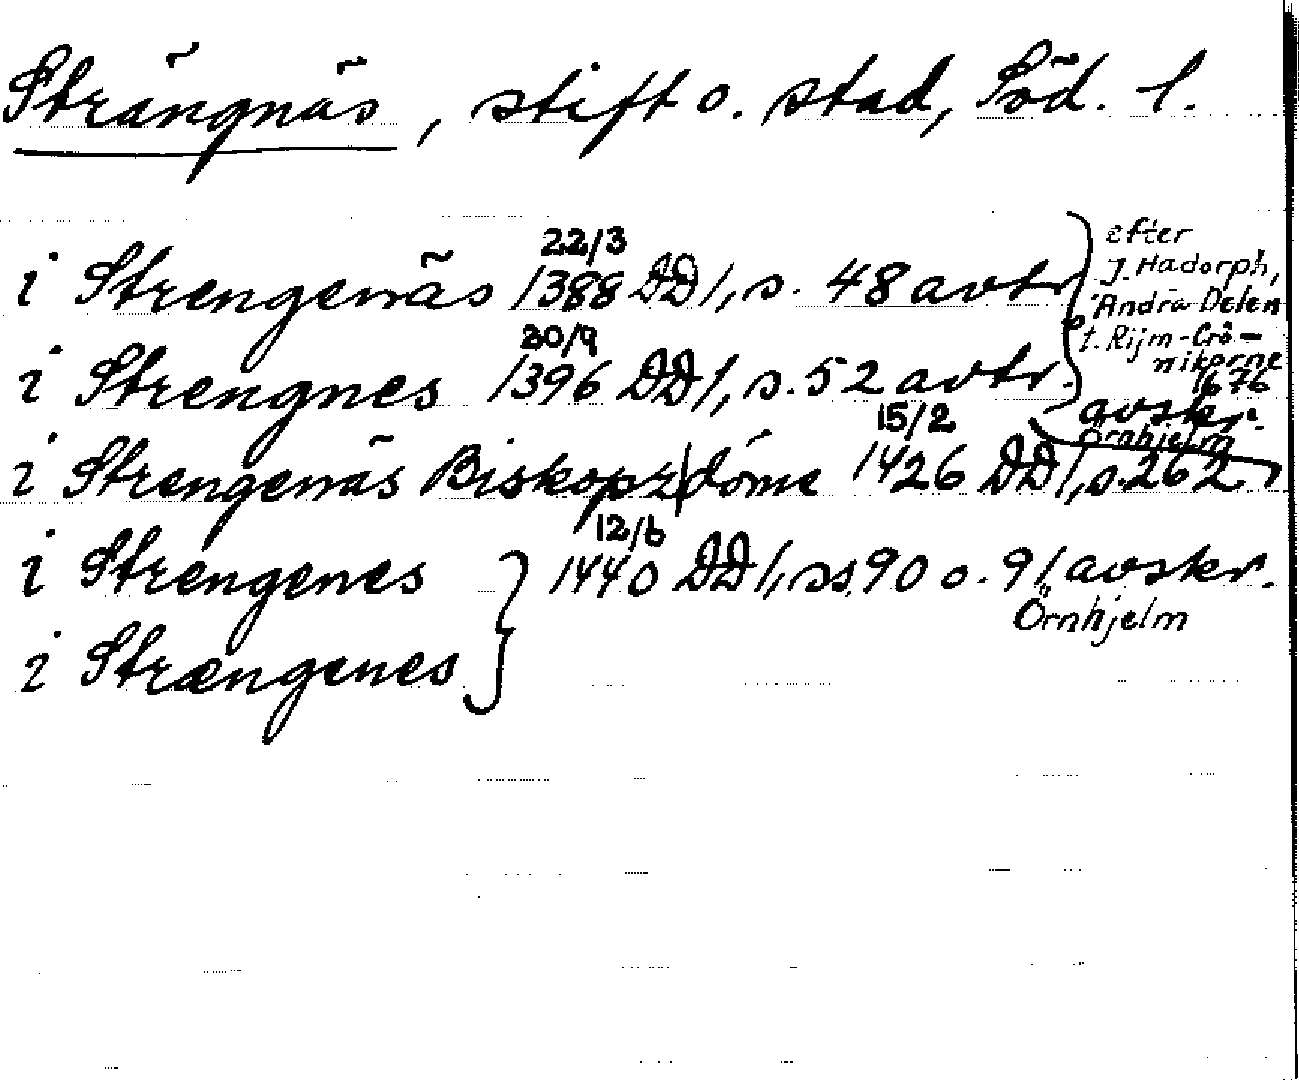 Strängnäs, stift o. stad, Söd. l.
i Strengenäs 22/3 1388 DD 1, s. 48 avtr.
efter J. Hadorph, Andra Delen t. Rijm-Crö-nikorne 1676
i Strengnes 30/9 1396 DD 1, s. 52 avtr.
avskr. Örnhjelm
i Strengenäs Biskopz|döme 15/2 1426 DD 1, s. 262
i Strengenes 12/6 1440 DD 1, ss. 90 o. 91 avskr.
Örnhjelm
i Strængenes